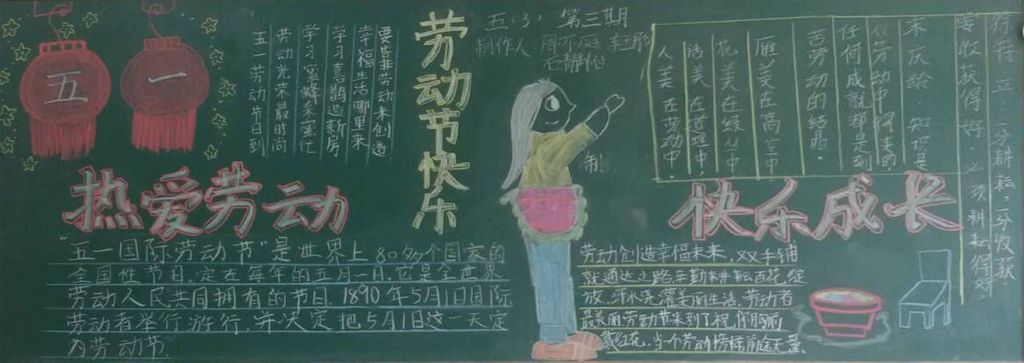 五 一
五一劳动节日到
劳动光荣最时尚
学习蜜蜂采蜜忙
学习喜鹊造新房
幸福生活哪里来
要靠劳动来创造
劳动节快乐
五(3) 第三期
制作人
人美在劳动中.
诗美在道理中,
花美在绿丛中,
雁美在高空中
苦劳动的结晶.
任何成就都是刻
从劳动中得来的
宋庆龄:知识是
要收获得好,必须耕耘得好
一分耕耘,一分收获.
热爱劳动
快乐成长
"五一国际劳动节"是世界上80多个国家的
全国性节日.定在每年的五月一日.它是全世界
劳动人民共同拥有的节日.1890年5月1日国际
劳动者举行游行,并决定把5月1日这一天定
为劳动节
劳动创造幸福未来,双手铺
就通达之路辛勤耕耘百花绽
放,汗水浇灌美丽生活,劳动者
最美丽劳动节来到了祝你胸前
戴红花,当个劳动榜样前途无量